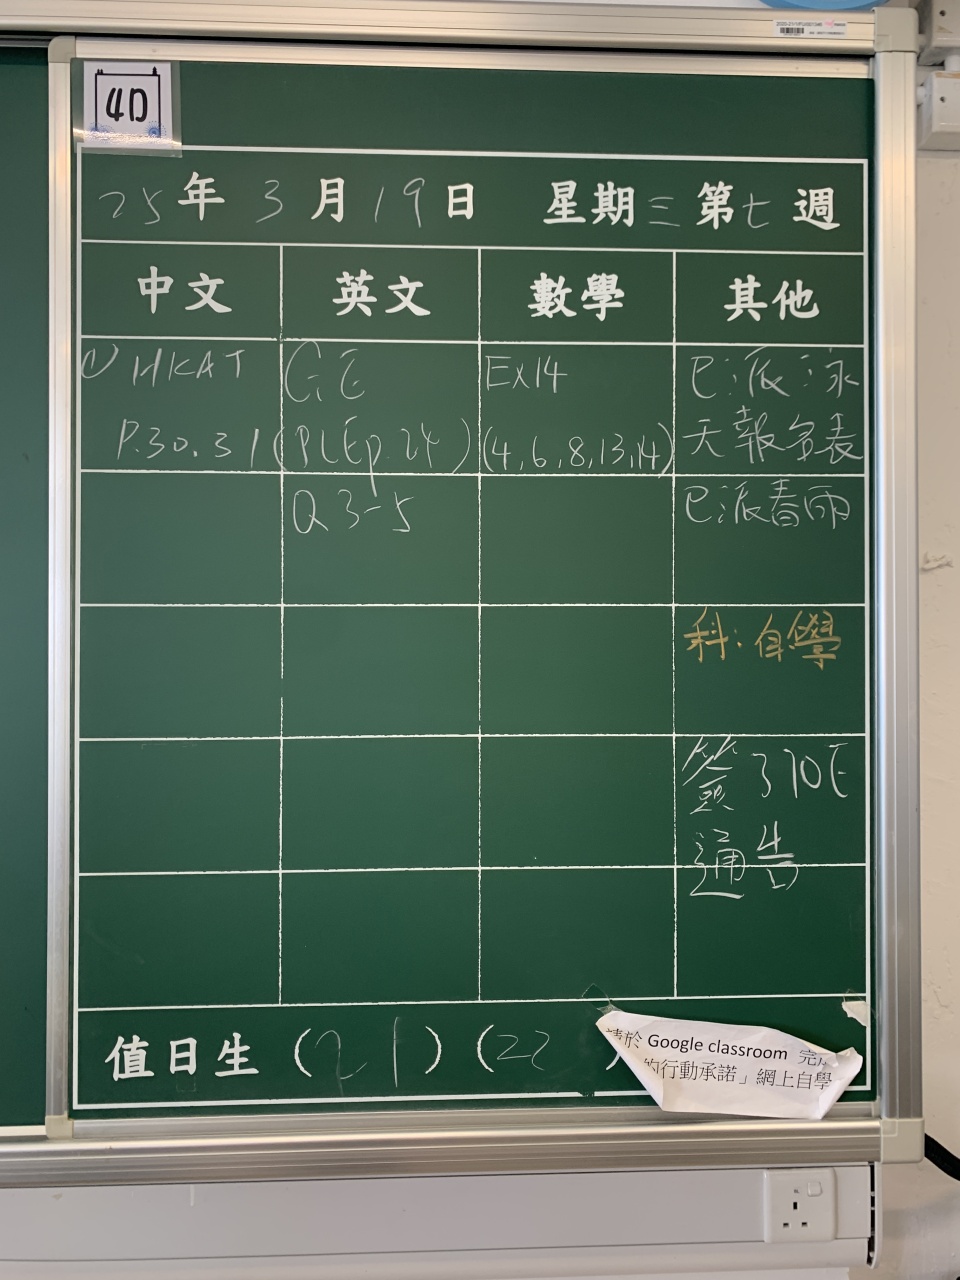 4D
25年3月19日 星期三第七週
中文 英文 數學 其他
① HKAT
P.30.31
GE
(PLEp.24)
Q3-5
Ex14
(4,6,8,13,14)
已派泳
天報名表
已派春雨
科:自學
簽
通告
值日生(21)(22 )
請於 Google classroom 完
的行動承諾」網上自學